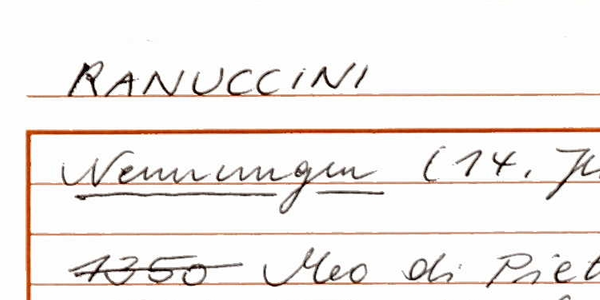 RANUCCINI
Nennungen (14. J
1350 Meo di Piet